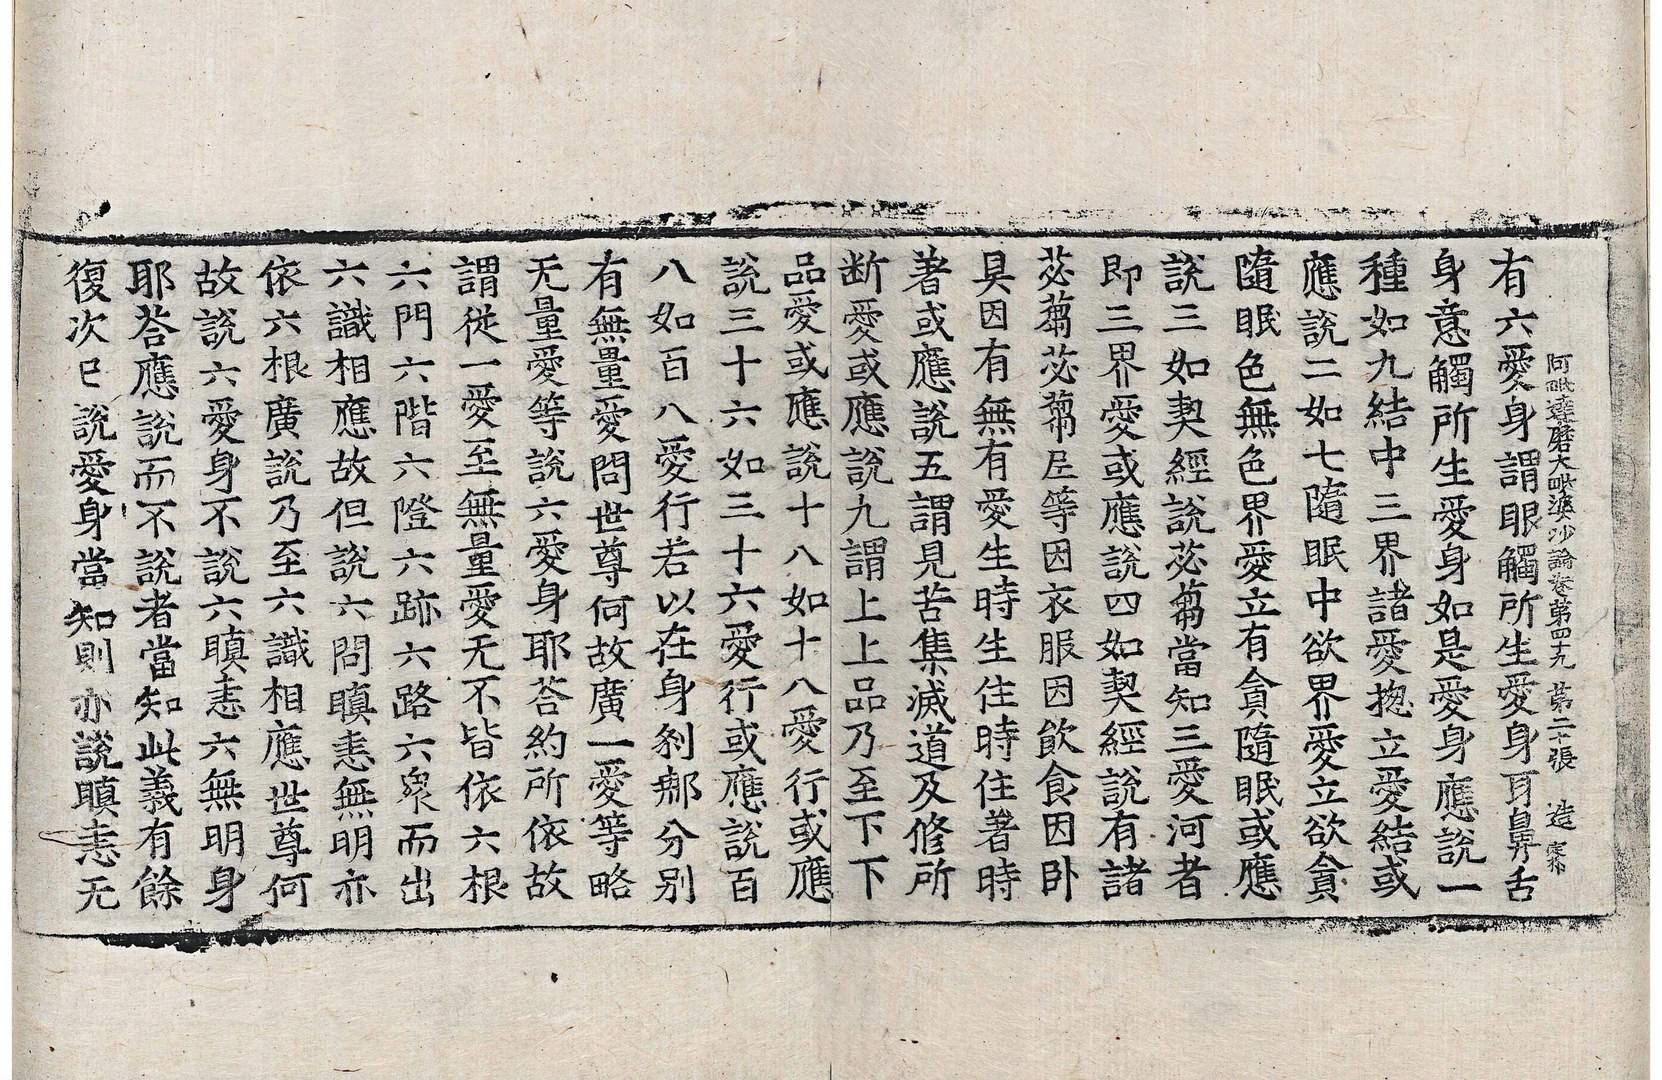 阿毗達磨大毗婆沙論卷第四十九 第二十張 造
有六愛身謂眼觸所生愛身耳鼻舌
身意觸所生愛身如是愛身應說一
種如九結中三界諸愛揔立愛結或
應說二如七隨眠中欲界愛立欲貪
隨眠色無色界愛立有貪隨眠或應
說三如契經說苾蒭當知三愛河者
即三界愛或應說四如契經說有諸
苾蒭苾蒭尼等因衣服因飮食因卧
具因有無有愛生時生住時住著時
著或應說五謂見苦集滅道及修所
断愛或應說九謂上上品乃至下下
品愛或應說十八如十八愛行或應
說三十六如三十六愛行或應說百
八如百八愛行若以在身刹那分别
有無量愛問世尊何故廣一愛等略
无量愛等說六愛身耶荅約所依故
謂從一愛至無量愛无不皆依六根
六門六階六隥六跡六路六衆而出
六識相應故但說六問瞋恚無明亦
依六根廣說乃至六識相應世尊何
故說六愛身不說六瞋恚六無明身
耶荅應說而不說者當知此義有餘
復次已說愛身當知則亦說瞋恚无